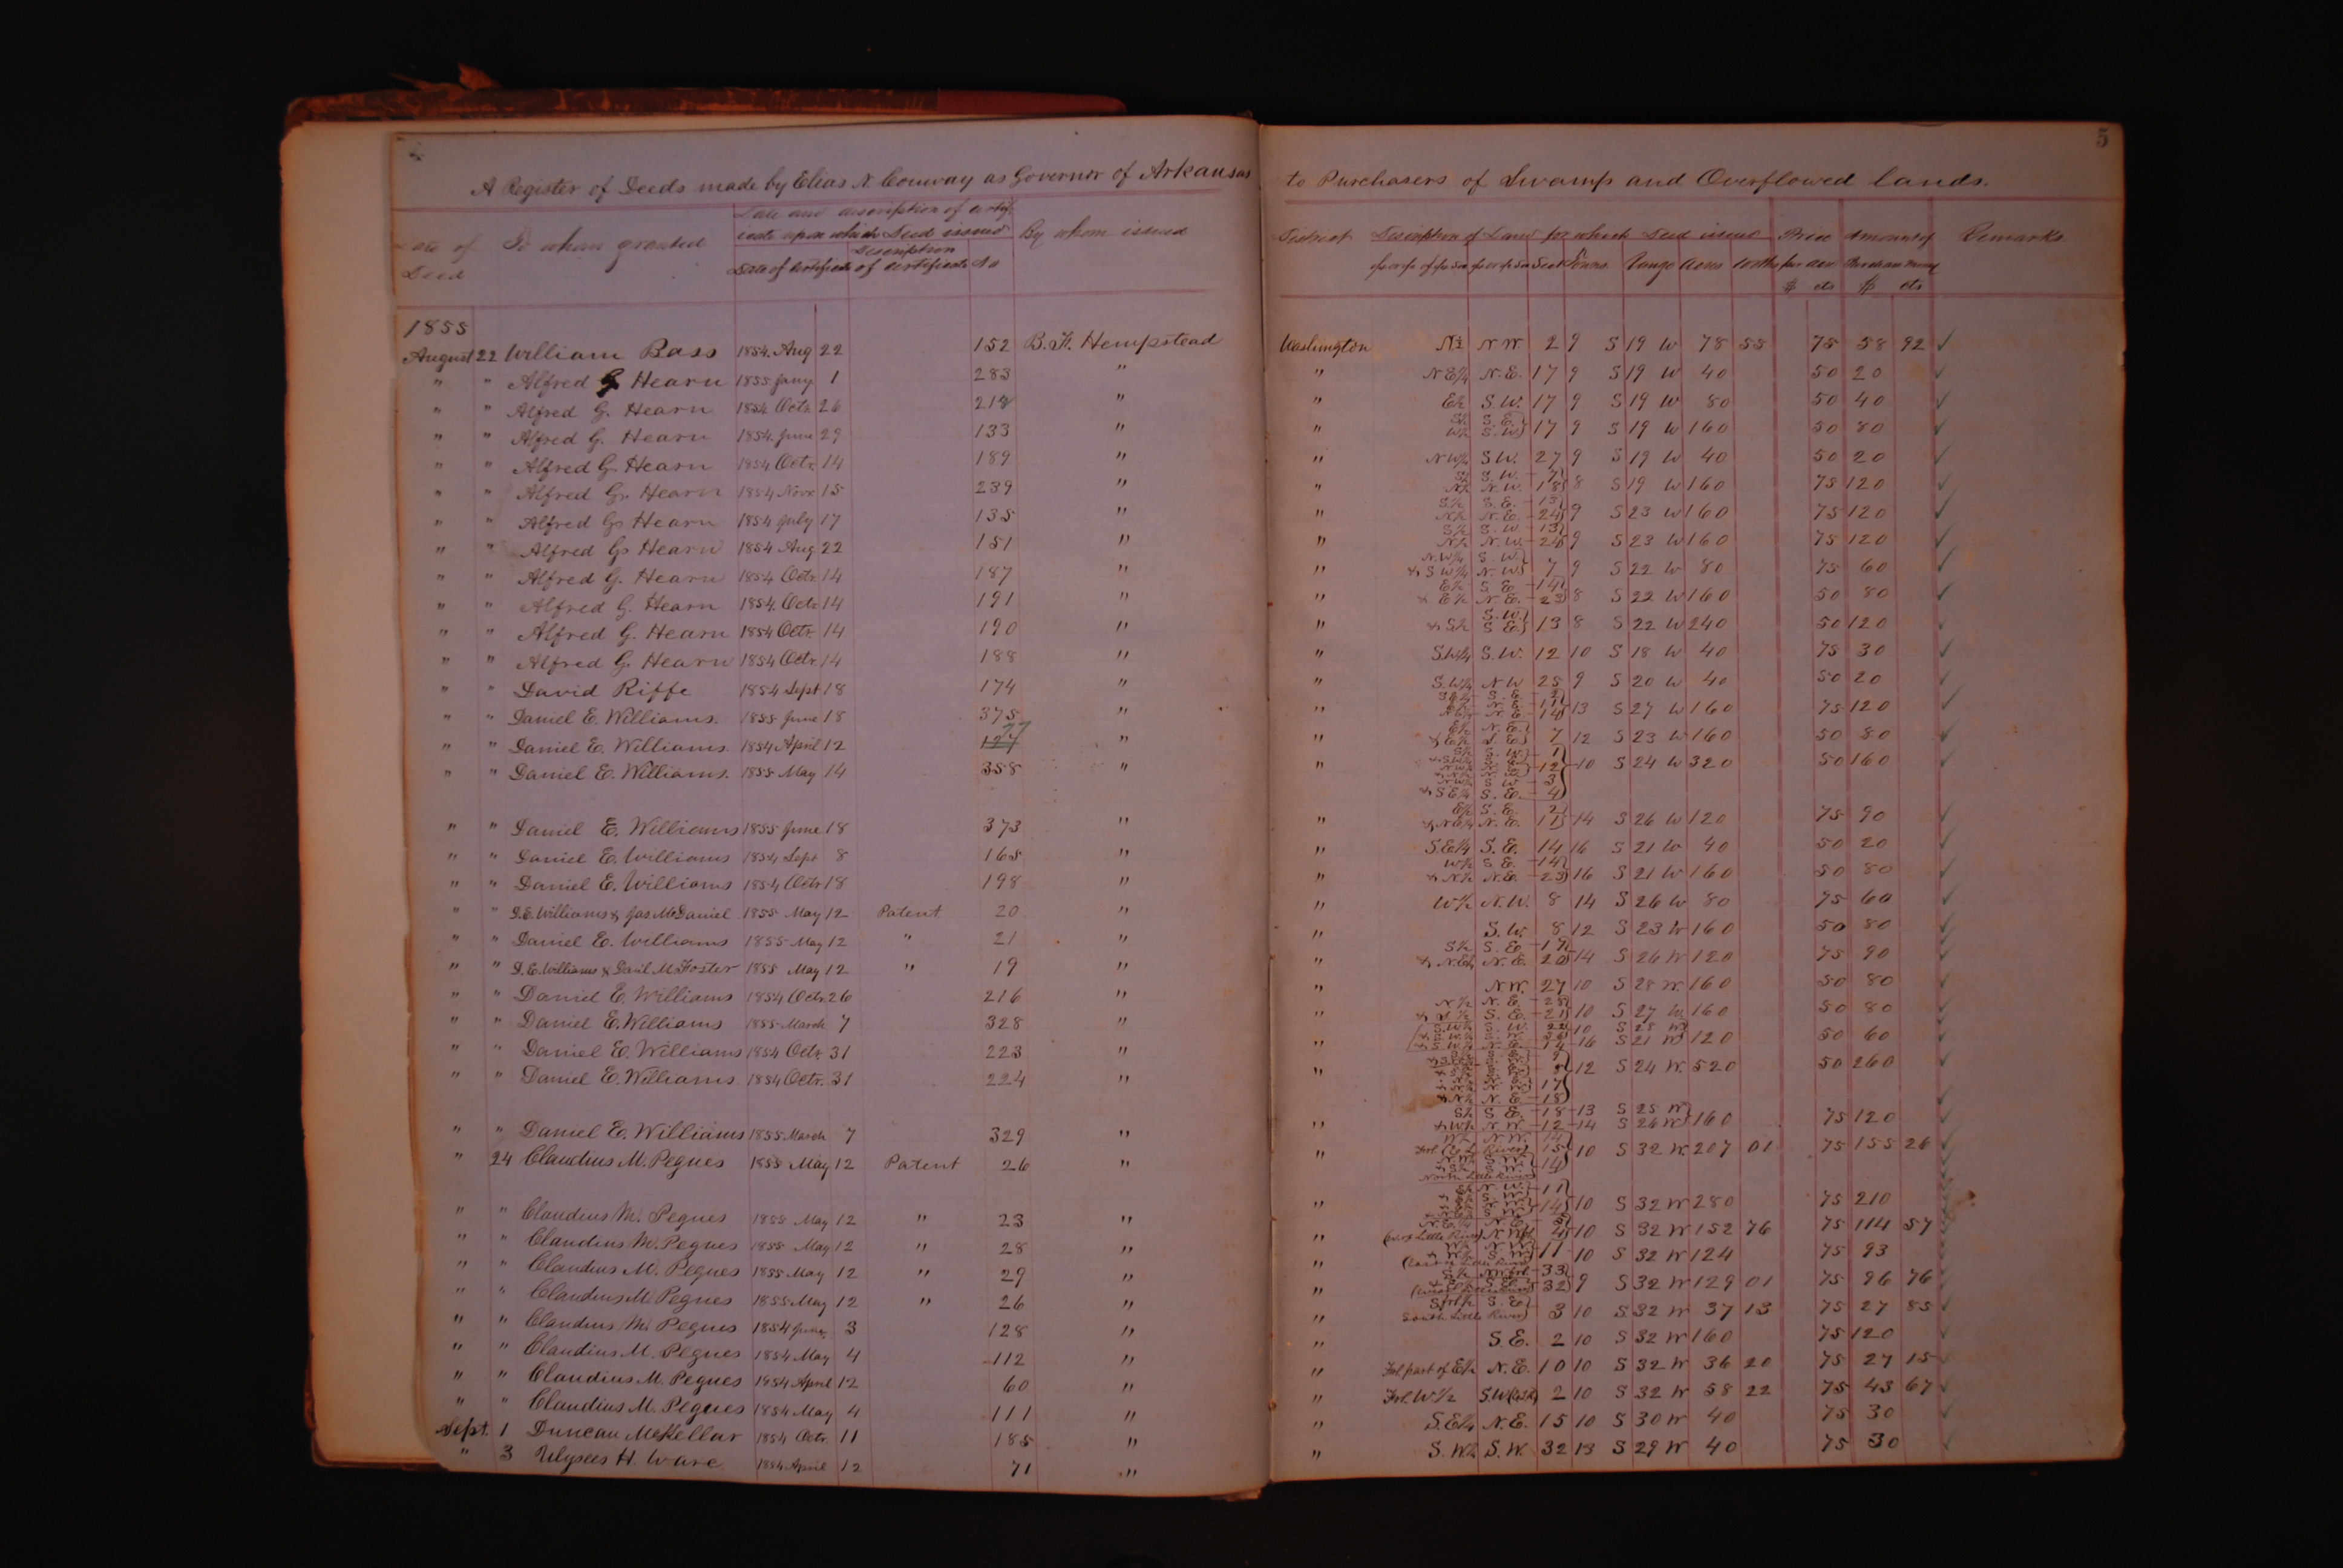 5
A Register of Deeds made by Elias N. Conway as Governor of Arkansas to Purchasers of Swamp and Overflowed lands.
Date of Deed To whom granted Date and description of certificate upon which Deed issued By whom issued District Description of Land for which Deed issued Price per acre Amount of Purchase money Remarks
Date of certificate Description of certificate No Sect Towns. Range Acres
$ cts $ cts
1855
August 22 William Bass 1854. Aug 22 152 B. F. Hempstead Washington N½ N.W. 2 9 S 19 W 78 55 75 58 92 ✓
" " Alfred G Hearn 1855 Jany 1 283 " " N E¼ N.E. 17 9 S 19 W 40 50 20 ✓
" " Alfred G. Hearn 1854 Octr. 26 218 " " E½ S.W. 17 9 S 19 W 80 50 40 ✓
" " Alfred G. Hearn 1854. June 29 133 " " S½ S.E. W½ S.W. 17 9 S 19 W 160 50 80 ✓
" " Alfred G. Hearn 1854 Octr. 14 189 " " N W¼ S.W. 27 9 S 19 W 40 50 20 ✓
" " Alfred G. Hearn 1854 Novr. 15 239 " " S½ S.W. 7 N½ N.W. 18 8 S 19 W 160 75 120 ✓
" " Alfred G. Hearn 1854 July 17 135 " " S½ S.E. 13 N½ N.E. 24 9 S 23 W 160 75 120 ✓
" " Alfred G. Hearn 1854 Aug 22 151 " " S½ S.W. 13 N½ N.W. 24 9 S 23 W 160 75 120 ✓
" " Alfred G. Hearn 1854 Octr. 14 187 " " N.W¼ S.W. & S W¼ N.W. 7 9 S 22 W 80 75 60 ✓
" " Alfred G. Hearn 1854. Octr. 14 191 " " E½ S.E. 14 & E½ N.E. 23 8 S 22 W 160 50 80 ✓
" " Alfred G. Hearn 1854 Octr. 14 190 " " S.W. & S½ S.E. 13 8 S 22 W 240 50 120 ✓
" " Alfred G. Hearn 1854 Octr. 14 188 " " S.W¼ S.W. 12 10 S 18 W 40 75 30 ✓
" " David Riffe 1854 Sept 18 174 " " S.W¼ N W 25 9 S 20 W 40 50 20 ✓
" " Daniel E. Williams. 1855 June 18 375 " " S.E. 2 N.E. 11 N.E. 14 13 S 27 W 160 75 120 ✓
" " Daniel E. Williams 1854 April 12 77 " " E½ N.E. & E½ S.E. 7 12 S 23 W 160 50 80 ✓
" " Daniel E. Williams. 1855 May 14 358 " " S½ S.W. 1 12 3 & S E¼ S.E. 4 10 S 24 W 320 50 160 ✓
" " Daniel E. Williams 1855 June 18 373 " " E½ S.E. 2 & N.E¼ N.E. 11 14 S 26 W 120 75 90 ✓
" " Daniel E. Williams 1854 Sept 8 165 " " S.E¼ S.E. 14 16 S 21 W 40 50 20 ✓
" " Daniel E. Williams 1854 Octr 18 198 " " W½ S.E. 14 & N½ N.E. 23 16 S 21 W 160 50 80 ✓
" " D.E. Williams & Jas. McDaniel 1855 May 12 Patent 20 " " W½ N.W. 8 14 S 26 W 80 75 60 ✓
" " Daniel E. Williams 1855 May 12 " 21 " " S.W. 8 12 S 23 W 160 50 80 ✓
" " D.E. Williams & Danl. M. Foster 1855 May 12 " 19 " " S½ S.E. & N.E¼ N.E. 20 14 S 26 W 120 75 90 ✓
" " Daniel E. Williams 1854 Octr. 26 216 " " N.W. 27 10 S 28 W 160 50 80 ✓
" " Daniel E. Williams 1855 March 7 328 " " N½ N.E. 28 & S½ S.E. 21 10 S 27 W 160 50 80 ✓
" " Daniel E. Williams 1854 Octr. 31 223 " " S.W. 22 10 S 28 W 14 16 S 21 W 120 50 60 ✓
" " Daniel E. Williams 1854 Octr. 31 224 " " 17 & N½ N.E. 18 12 S 24 W 520 50 260 ✓
" " Daniel E. Williams 1855 March 7 329 " " S½ S.E. 18 13 S 25 W & W½ N.W. 12 14 S 26 W 160 75 120 ✓
" 24 Claudius M. Pegues 1855 May 12 Patent 26 " " W½ N.W. 14 15 14 North Little River 10 S 32 W 207 01 75 155 26 ✓
" " Claudius M. Pegues 1855 May 12 " 23 " " E½ N.W. 11 14 10 S 32 W 280 75 210 ✓
" " Claudius M. Pegues 1855 May 12 " 28 " " N.E¼ N.E. 10 S 32 W 152 76 75 114 57 ✓
" " Claudius M. Pegues 1855 May 12 " 29 " " W½ N.W. & W½ S.W. 11 10 S 32 W 124 75 93 ✓
" " Claudius M. Pegues 1855 May 12 " 26 " " 33 32 9 S 32 W 129 01 75 96 76 ✓
" " Claudius M. Pegues 1854 June 3 128 " " S frl ½ S.E. South Little River 3 10 S 32 W 37 13 75 27 85 ✓
" " Claudius M. Pegues 1854 May 4 112 " " S.E. 2 10 S 32 W 160 75 120 ✓
" " Claudius M. Pegues 1854 April 12 60 " " Frl. part of E½ N.E. 10 10 S 32 W 36 20 75 27 15 ✓
" " Claudius M. Pegues 1854 May 4 111 " " Frl. W½ S.W. 2 10 S 32 W 58 22 75 43 67 ✓
Sept. 1 Duncan McKellar 1854 Octr. 11 185 " " S.E¼ N.E. 15 10 S 30 W 40 75 30 ✓
" 3 Ulysees H. Ware 1854 April 12 71 " " S.W¼ S.W. 32 13 S 29 W 40 75 30 ✓